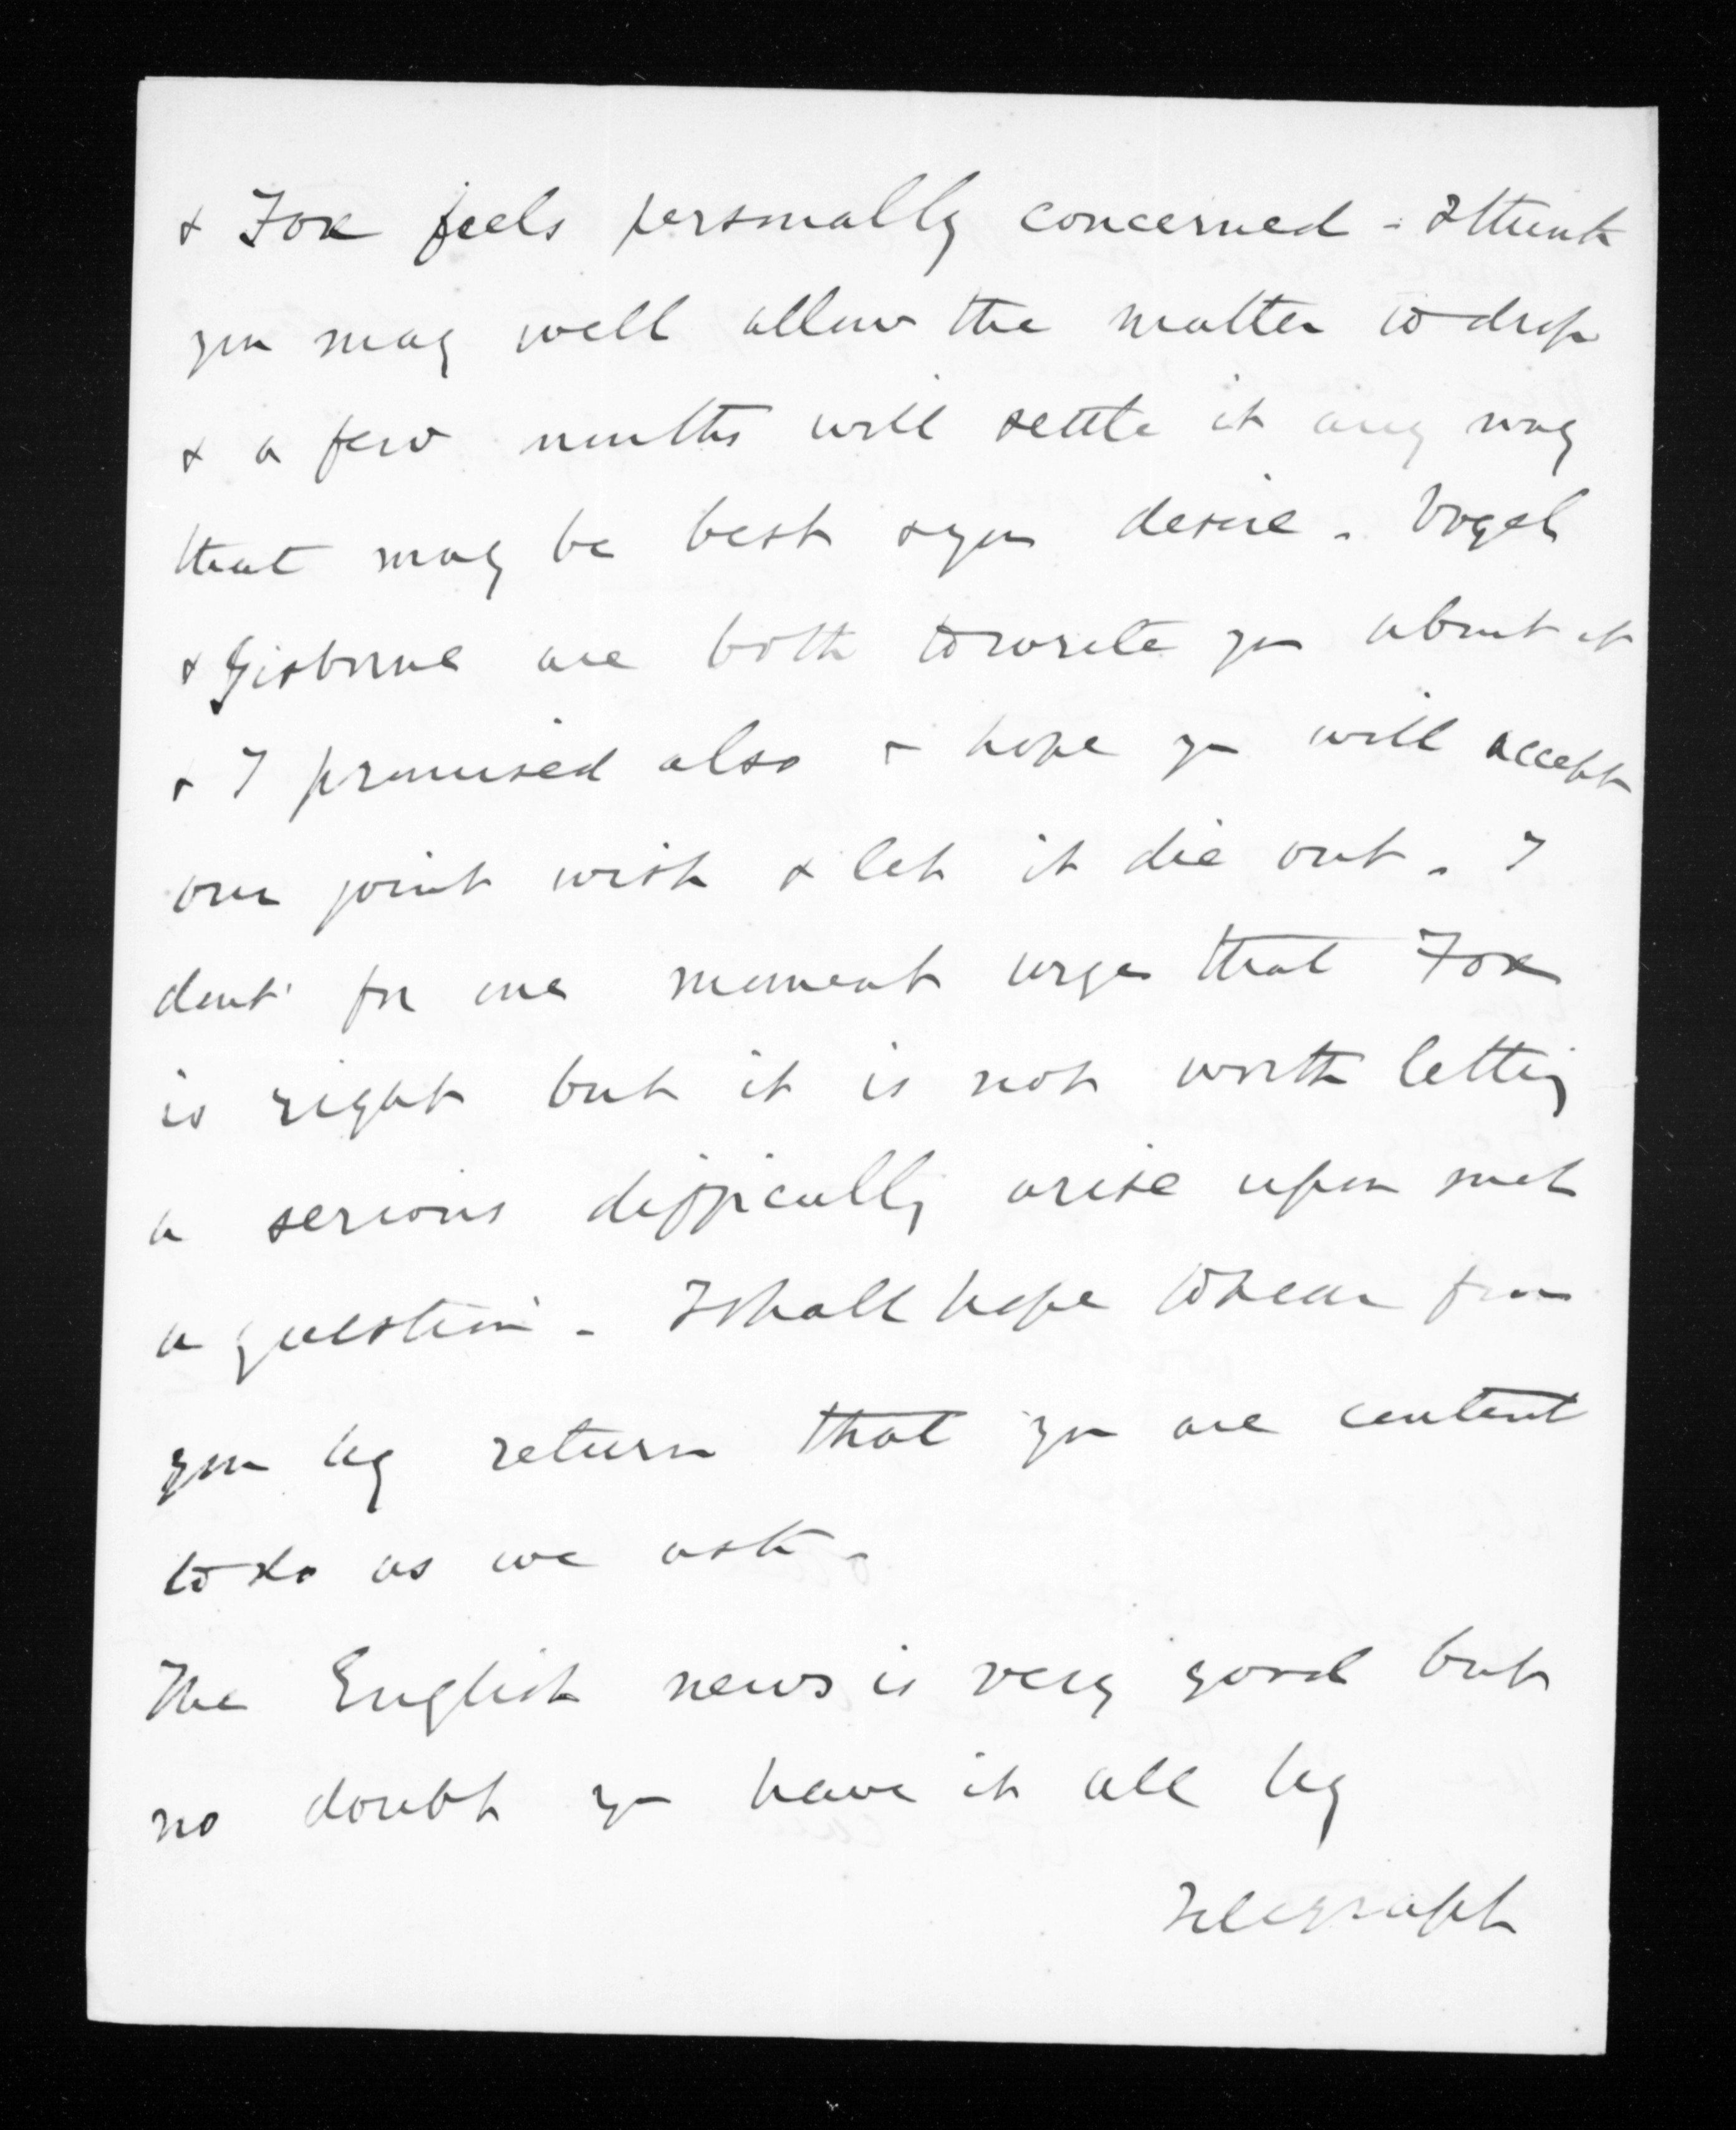 & Fox feels personally concerned - I think
you may well allow the matter to drop
& a few months will settle it any way
that may be best & you desire. Vogel
& Gisborne are both to write you about it
& I promised also & hope you will accept
our joint wish & let it die out. I
dont for one moment urge that Fox
is right but it is not worth letting
a serious difficulty arise upon such
a question. I shall hope to hear from
you by return that you are content
to do as we ask.
The English news is very good but
no doubt you have it all by
Telegraph